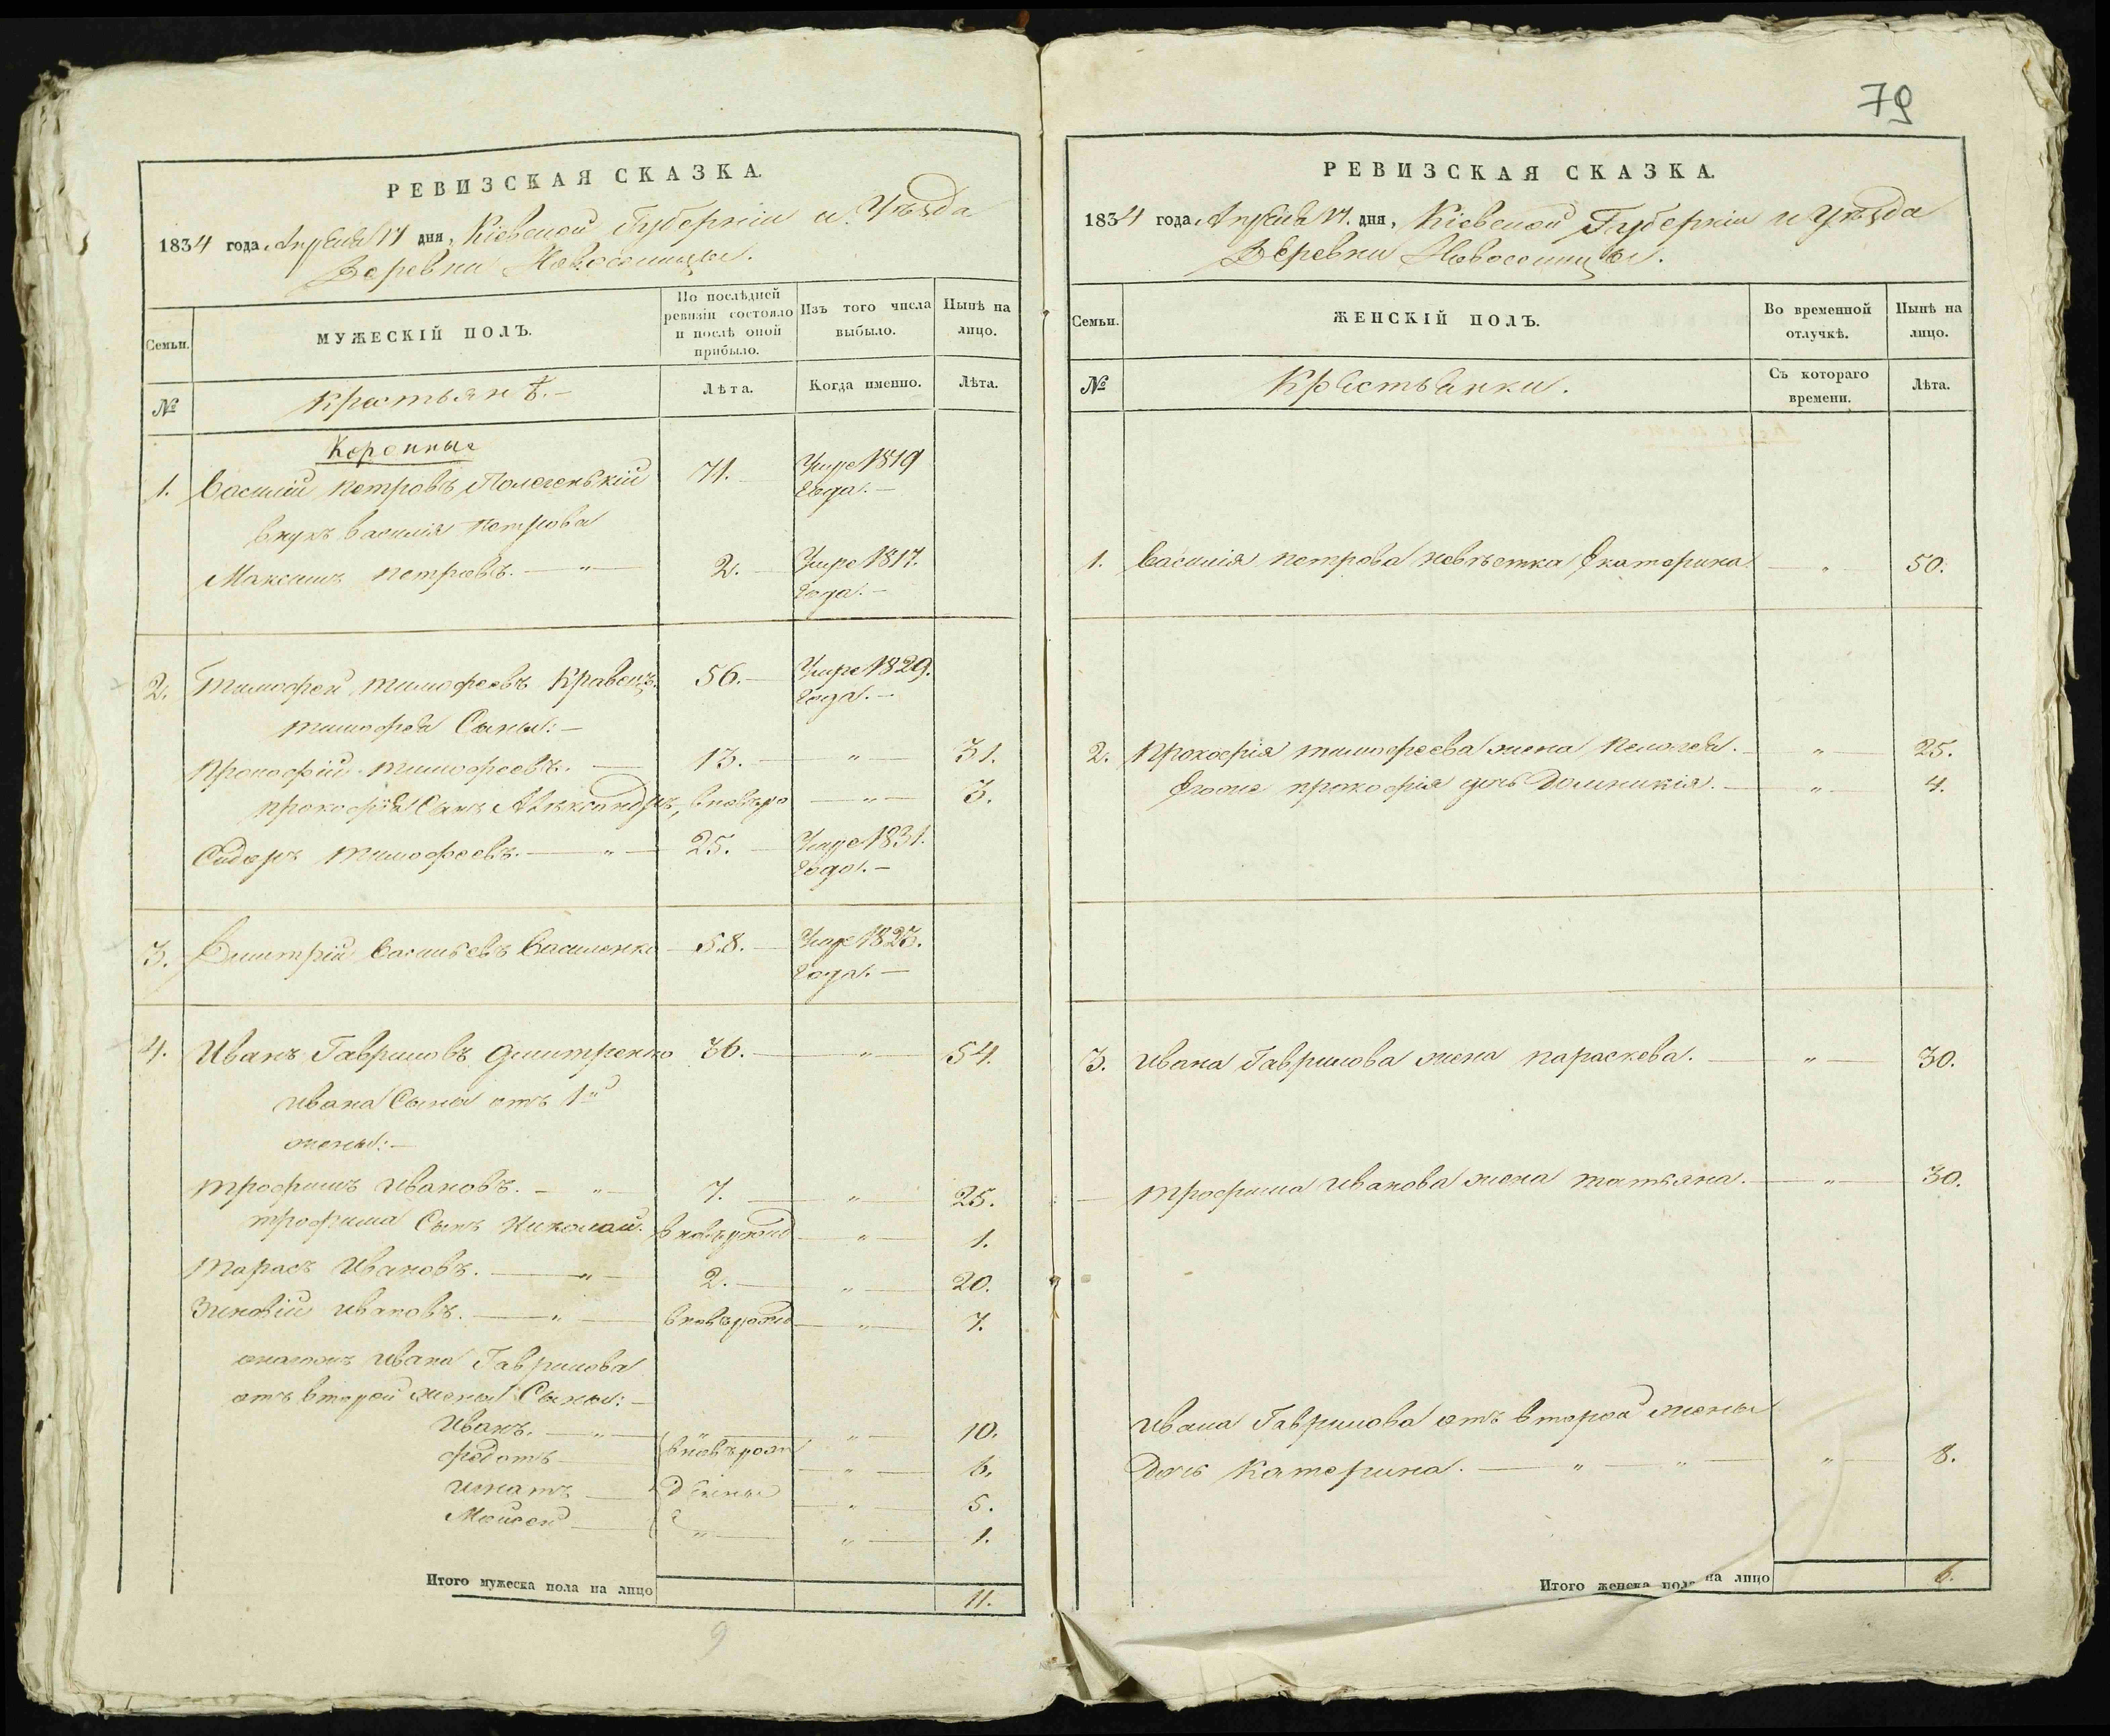 79
РЕВИЗСКАЯ СКАЗКА.
1834 года Апреля 17 дня, Кіевской Губерніи и Уѣзда
Деревни Новоселицы.
Семьи.
МУЖЕСКІЙ ПОЛЪ.
По послѣдней ревизіи состояло и послѣ оной прибыло.
Изъ того числа выбыло.
Нынѣ на лицо.
№
Крестьянѣ.
Лѣта.
Когда именно.
Лѣта.
Коронные
1. Василий Петровъ 71. Умре 1819
года.
внукъ Василія Петрова
Максимъ Петровъ. — " — 2. Умре 1817.
года.
2. Тимофей Тимофеевъ Кравецъ. 56. Умре 1829.
года.
Тимофея Сыны:
Прокофій Тимофеевъ. — 13. — " — 31.
Прокофія Сынъ Александръ, вновь ро — " — 3.
Сидоръ Тимофеевъ. — " — 25. Умре 1831.
года.
3. Дмитрій Васильевъ Василенко 58. Умре 1823.
года.
4. Иванъ Гавриловъ Дмитренко 36. — " — 54.
Ивана Сыны отъ 1й
жены:
Трофимъ Ивановъ. — " — 7. — " — 25.
Трофима Сынъ Николай. вновь рожд — " — 1.
Тарасъ Ивановъ. — " — 2. — " — 20.
Зиновій Ивановъ. — " — вновь рожд — " — 7.
Ивана Гаврилова
отъ второй жены Сыны:
Иванъ. — " — " — " — 10.
Федотъ — вновь рож — " — 6.
Игнатъ — денные — " — 5.
Мойсей — " — " — 1.
Итого мужеска пола на лицо 11.
9
РЕВИЗСКАЯ СКАЗКА.
1834 года Апреля 17 дня, Кіевской Губерніи и Уѣзда
Деревни Новоселицы.
Семьи.
ЖЕНСКІЙ ПОЛЪ.
Во временной отлучкѣ.
Нынѣ на лицо.
№
Крестьянки.
Съ котораго времени.
Лѣта.
1. Василія Петрова невѣстка Екатерина — " — 50.
2. Прокофія Тимофеева жена Пелагея. — " — 25.
Егоже Прокофія дочь Домникія. — " — 4.
3. Ивана Гаврилова жена Параскева. — " — 30.
Трофима Иванова жена Татьяна. — " — 30.
Ивана Гаврилова отъ второй жены
Дочь Катерина. — " — " — " — 8.
Итого женска пола на лицо 6.